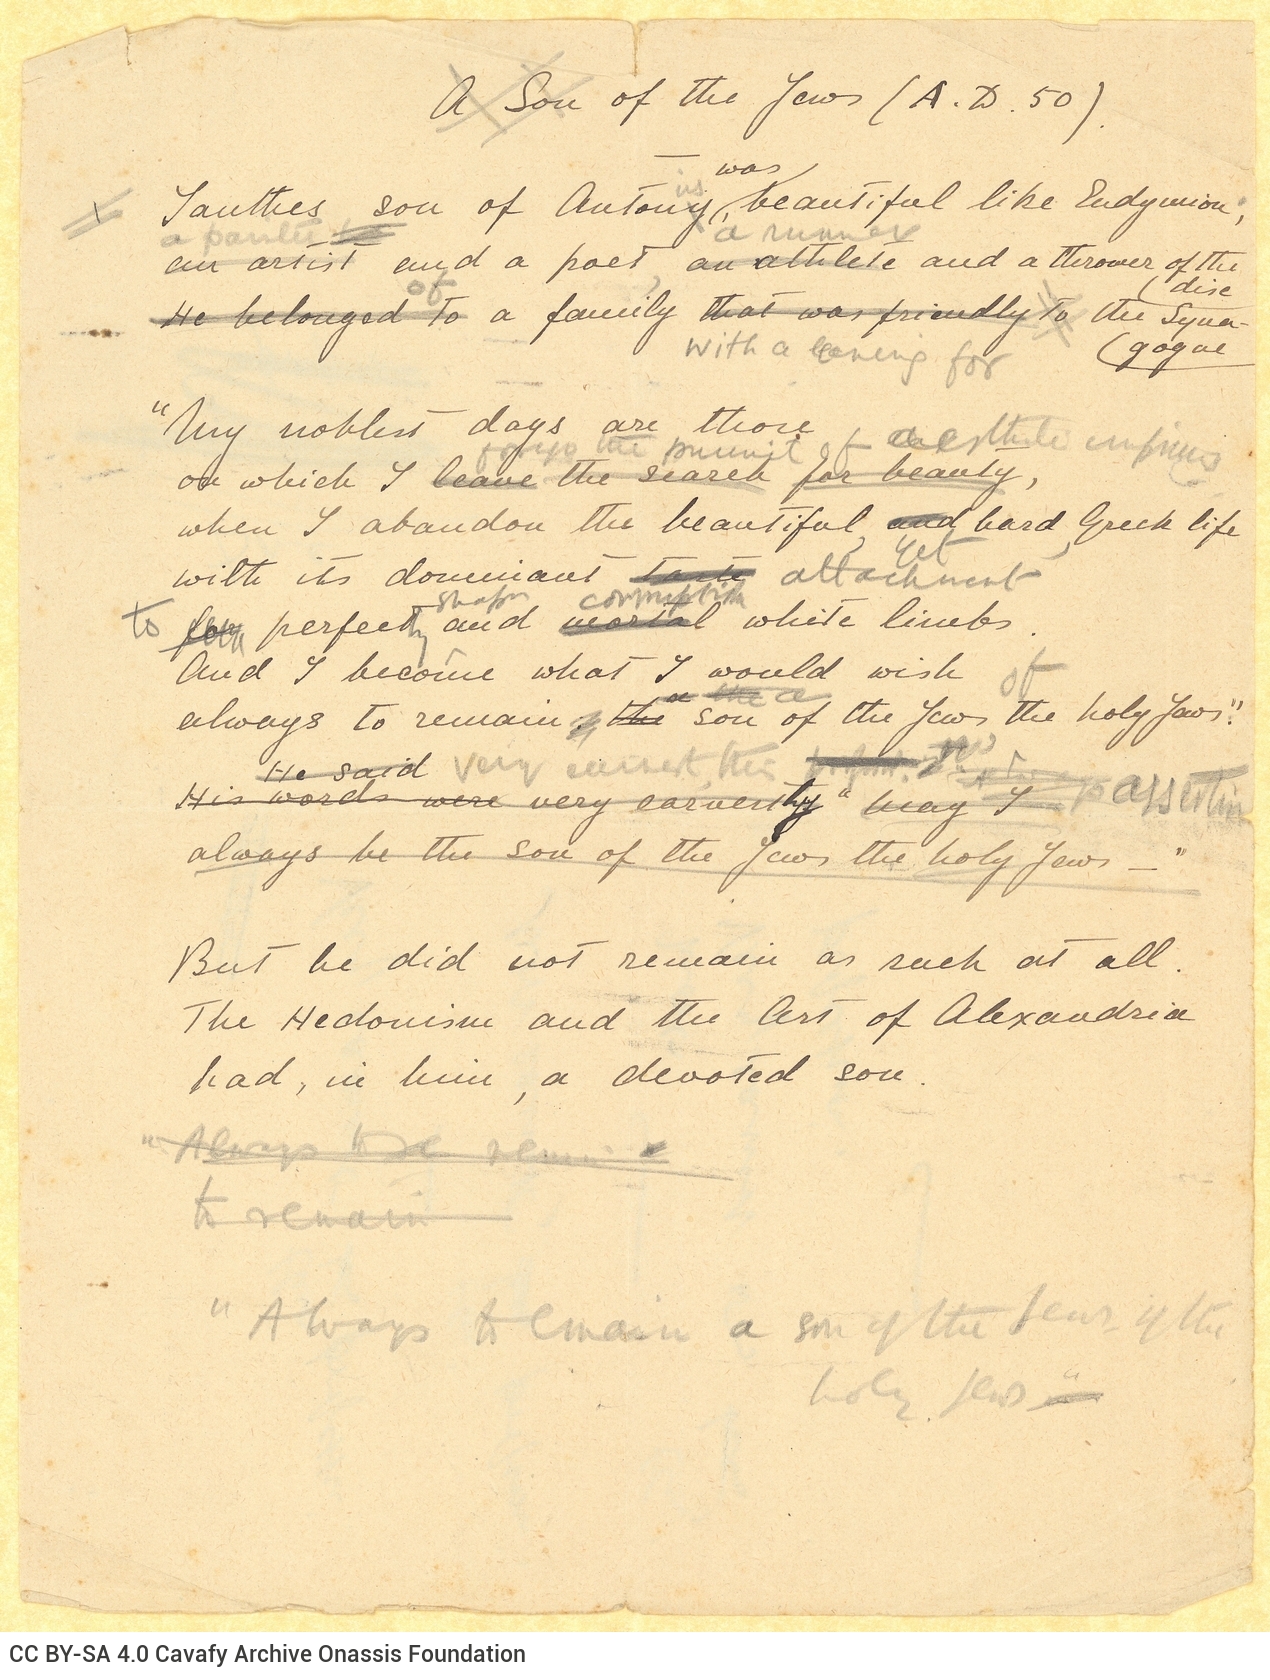 A Son of the Jews (A.D. 50).
was
is
Ianthes son of Antony, beautiful like Endymion;
a painter a runner
an artist and a poet, an athlete and a thrower of the
(disc
of
He belonged to a family that was friendly to the Syna-
(gogue
with a leaning for
"My noblest days are those
forgo the pursuit of aesthetic
on which I leave the search for beauty,
when I abandon the beautiful, and hard, Greek life
yet
with its dominant taste attachment
shapen corruptible
to for perfectly and mortal white limbs.
And I become what I would wish
a the a of
always to remain, the son of the Jews the holy Jews".
He said very earnest this
His words were very earnestly "May I assertion
always be the son of the Jews the holy Jews —"
But he did not remain as such at all.
The Hedonism and the Art of Alexandria
had, in him, a devoted son.
"Always to be
to remain
"Always to remain a son of the Jews, of the
holy Jews"
CC BY-SA 4.0 Cavafy Archive Onassis Foundation